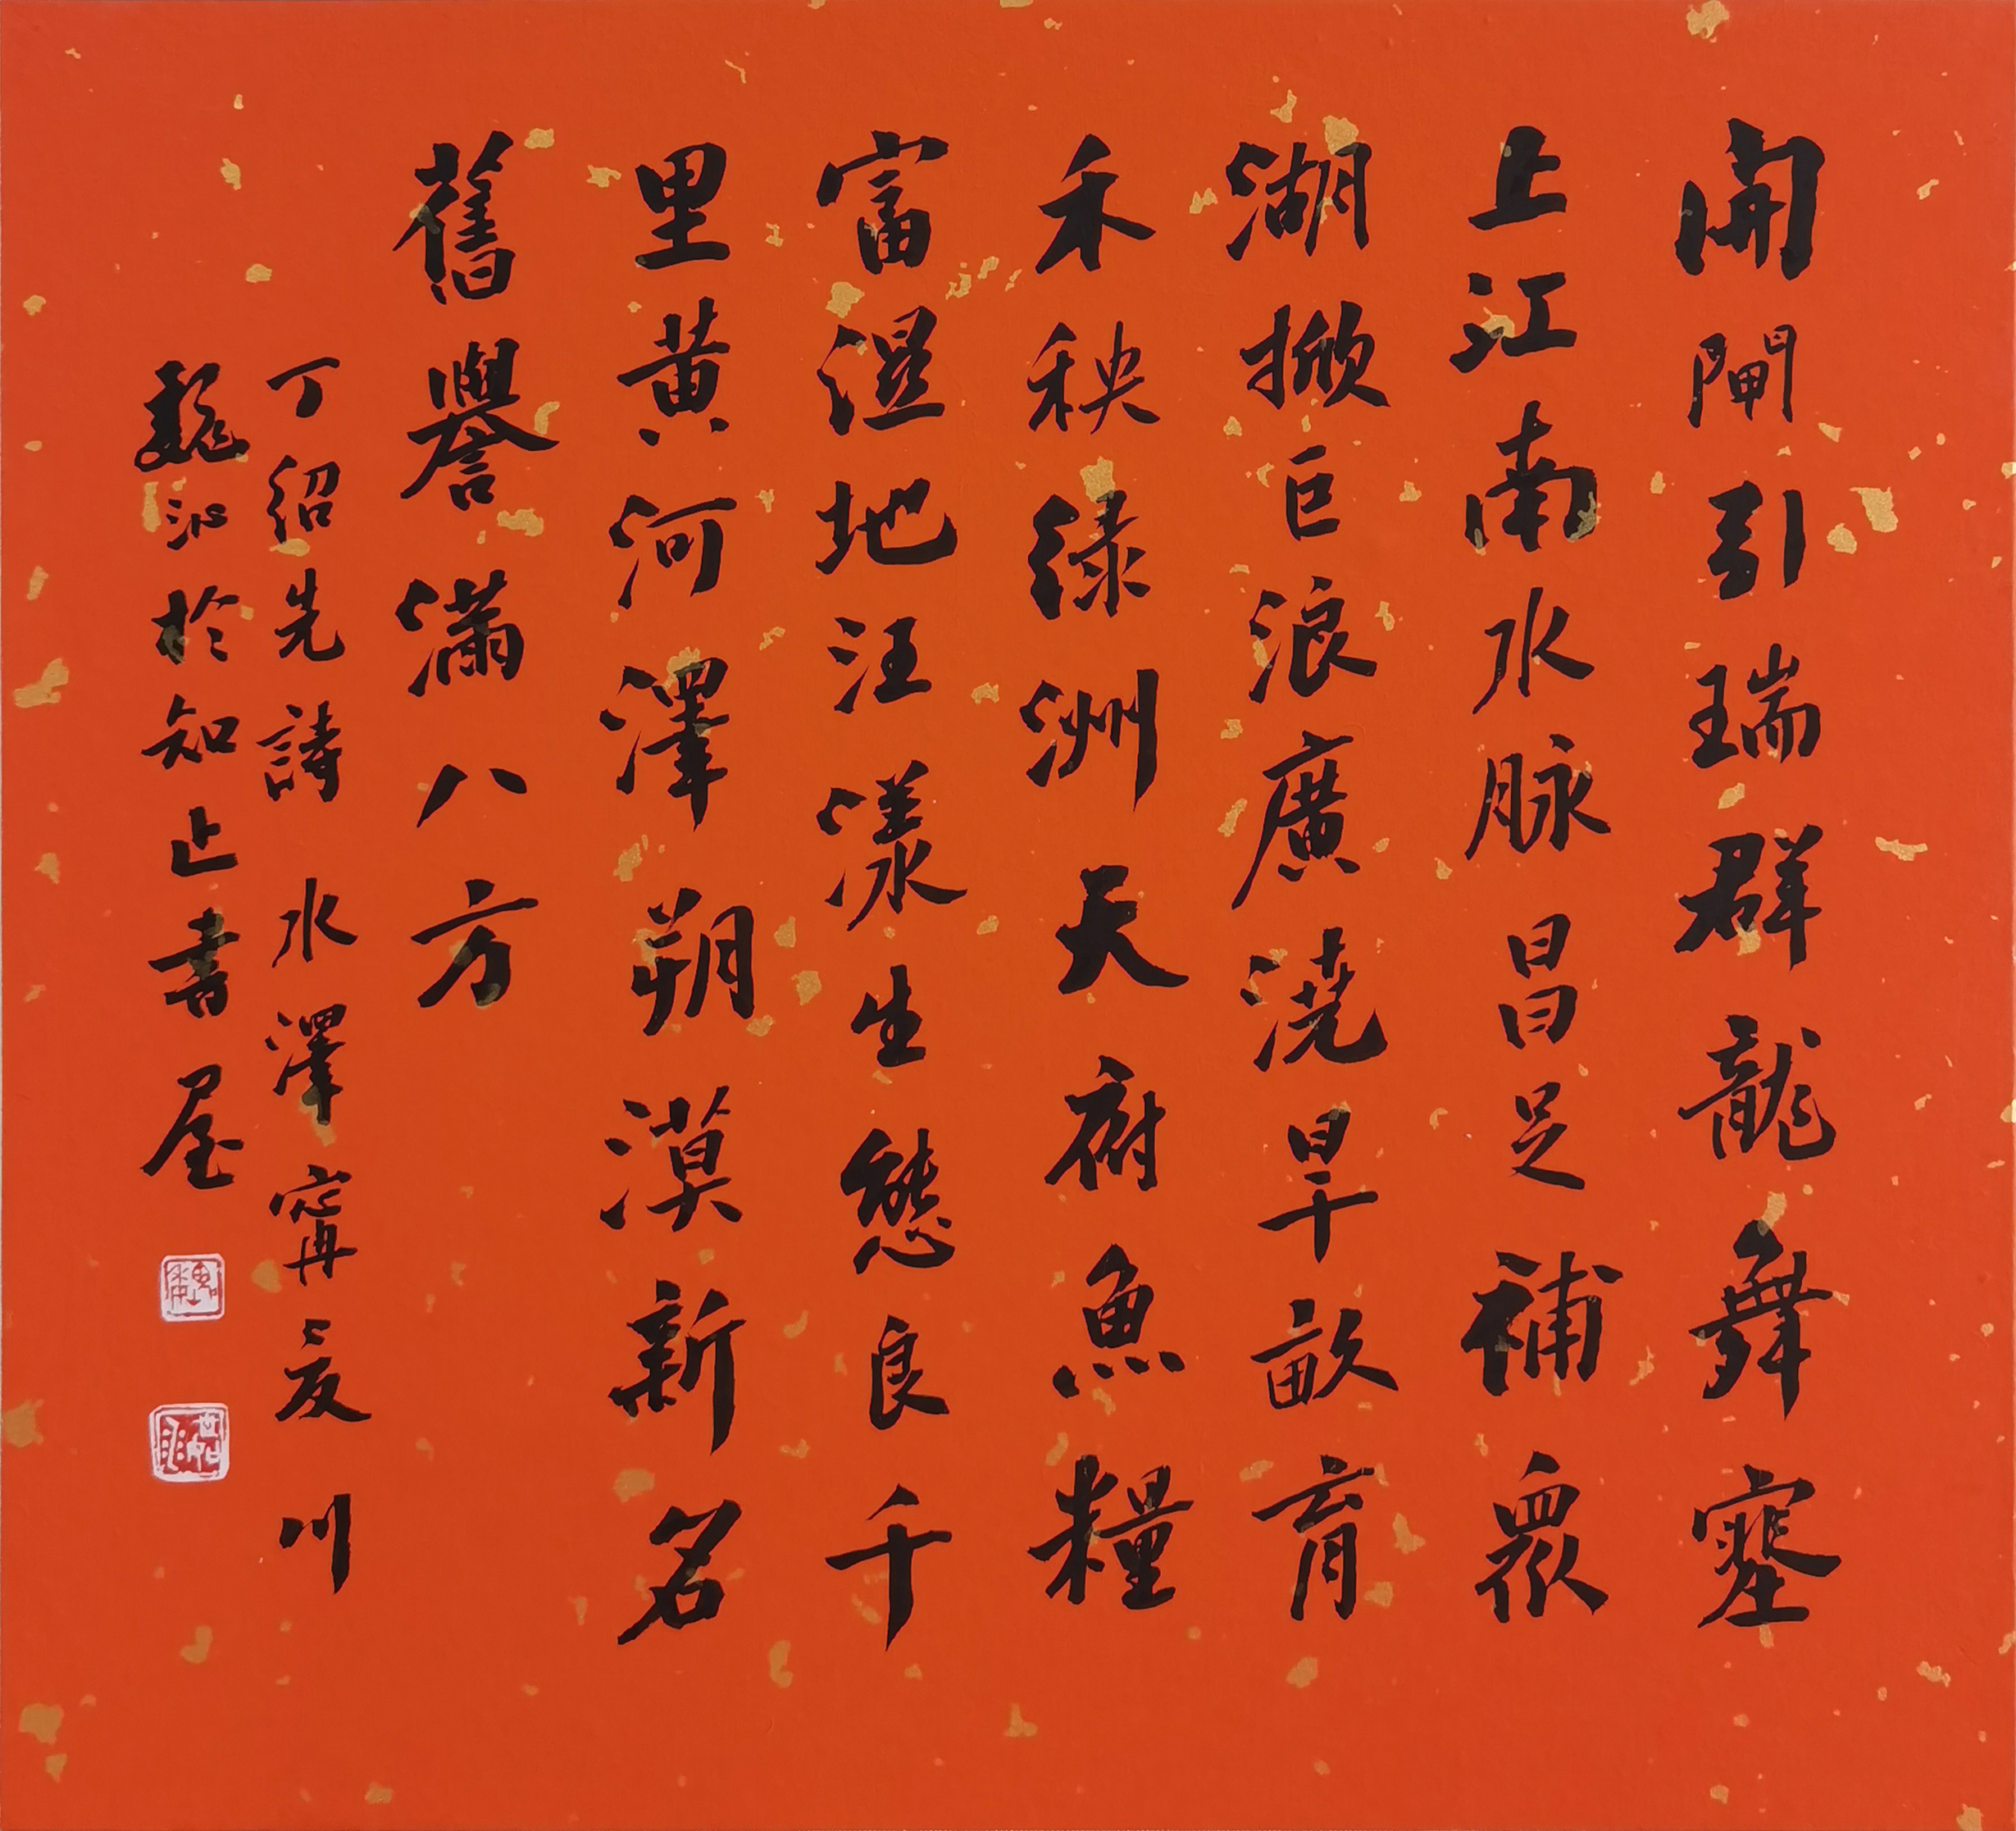 開閘引瑞群龍舞塞
上江南水脉昌足補眾
湖掀巨浪廣澆旱畝育
禾秧绿洲天府魚糧
富濕地汪漾生態良千
里黄河澤朔漠新名
舊譽滿八方
丁紹先詩 水澤寧夏川
魏沁於知止書屋